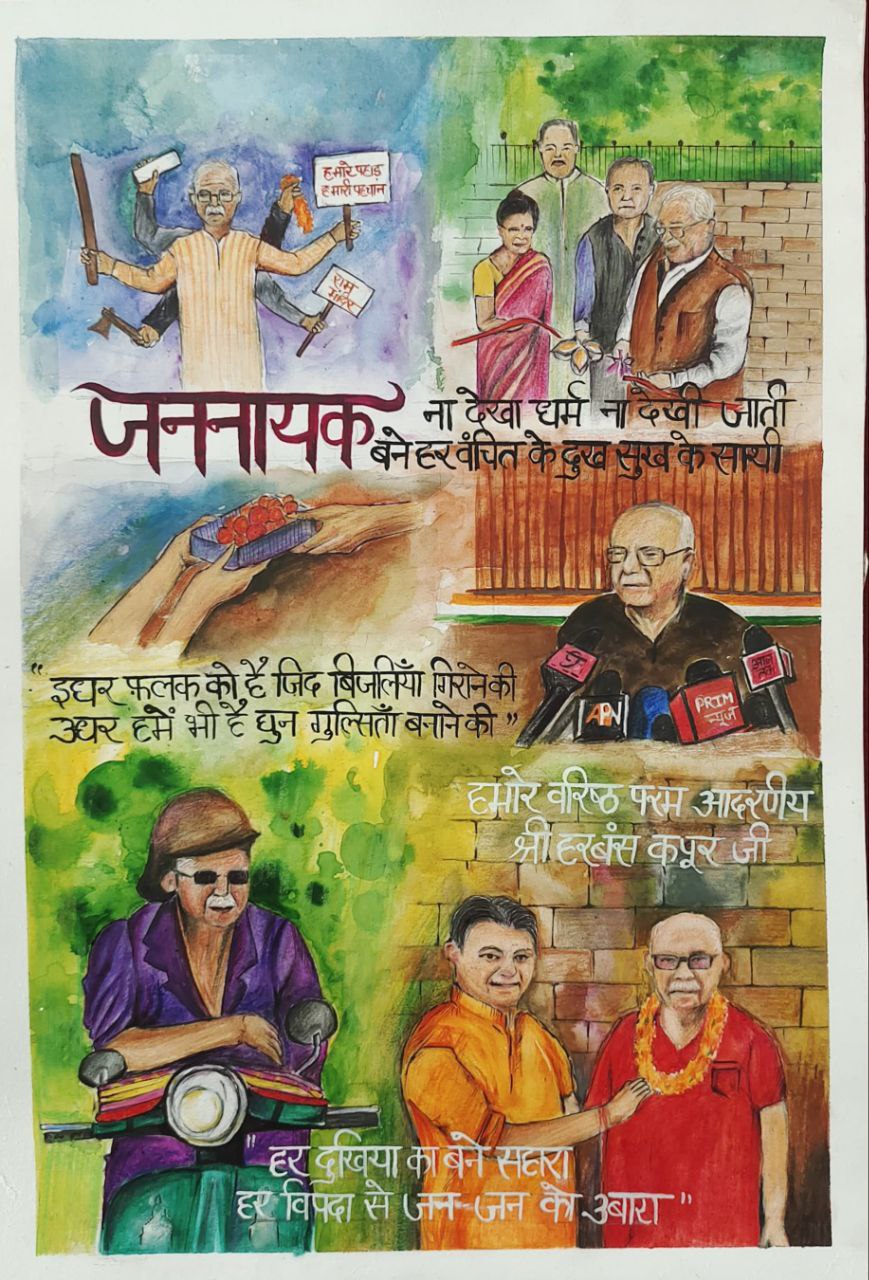 हमारे पहाड़
हमारी पहचान
राम
मंदिर
जननायक
ना देखा धर्म ना देखी जाती
बने हर वंचित के दुख सुख के साथी
"इधर फ़लक को है जिद बिजलियाँ गिराने की
उधर हमें भी है धुन गुल्सिताँ बनाने की"
APN
PRIM
न्यूज
आज
तक
हमारे वरिष्ठ परम आदरणीय
श्री हरबंस कपूर जी
"हर दुखिया का बने सहारा
हर विपदा से जन-जन को उबारा"